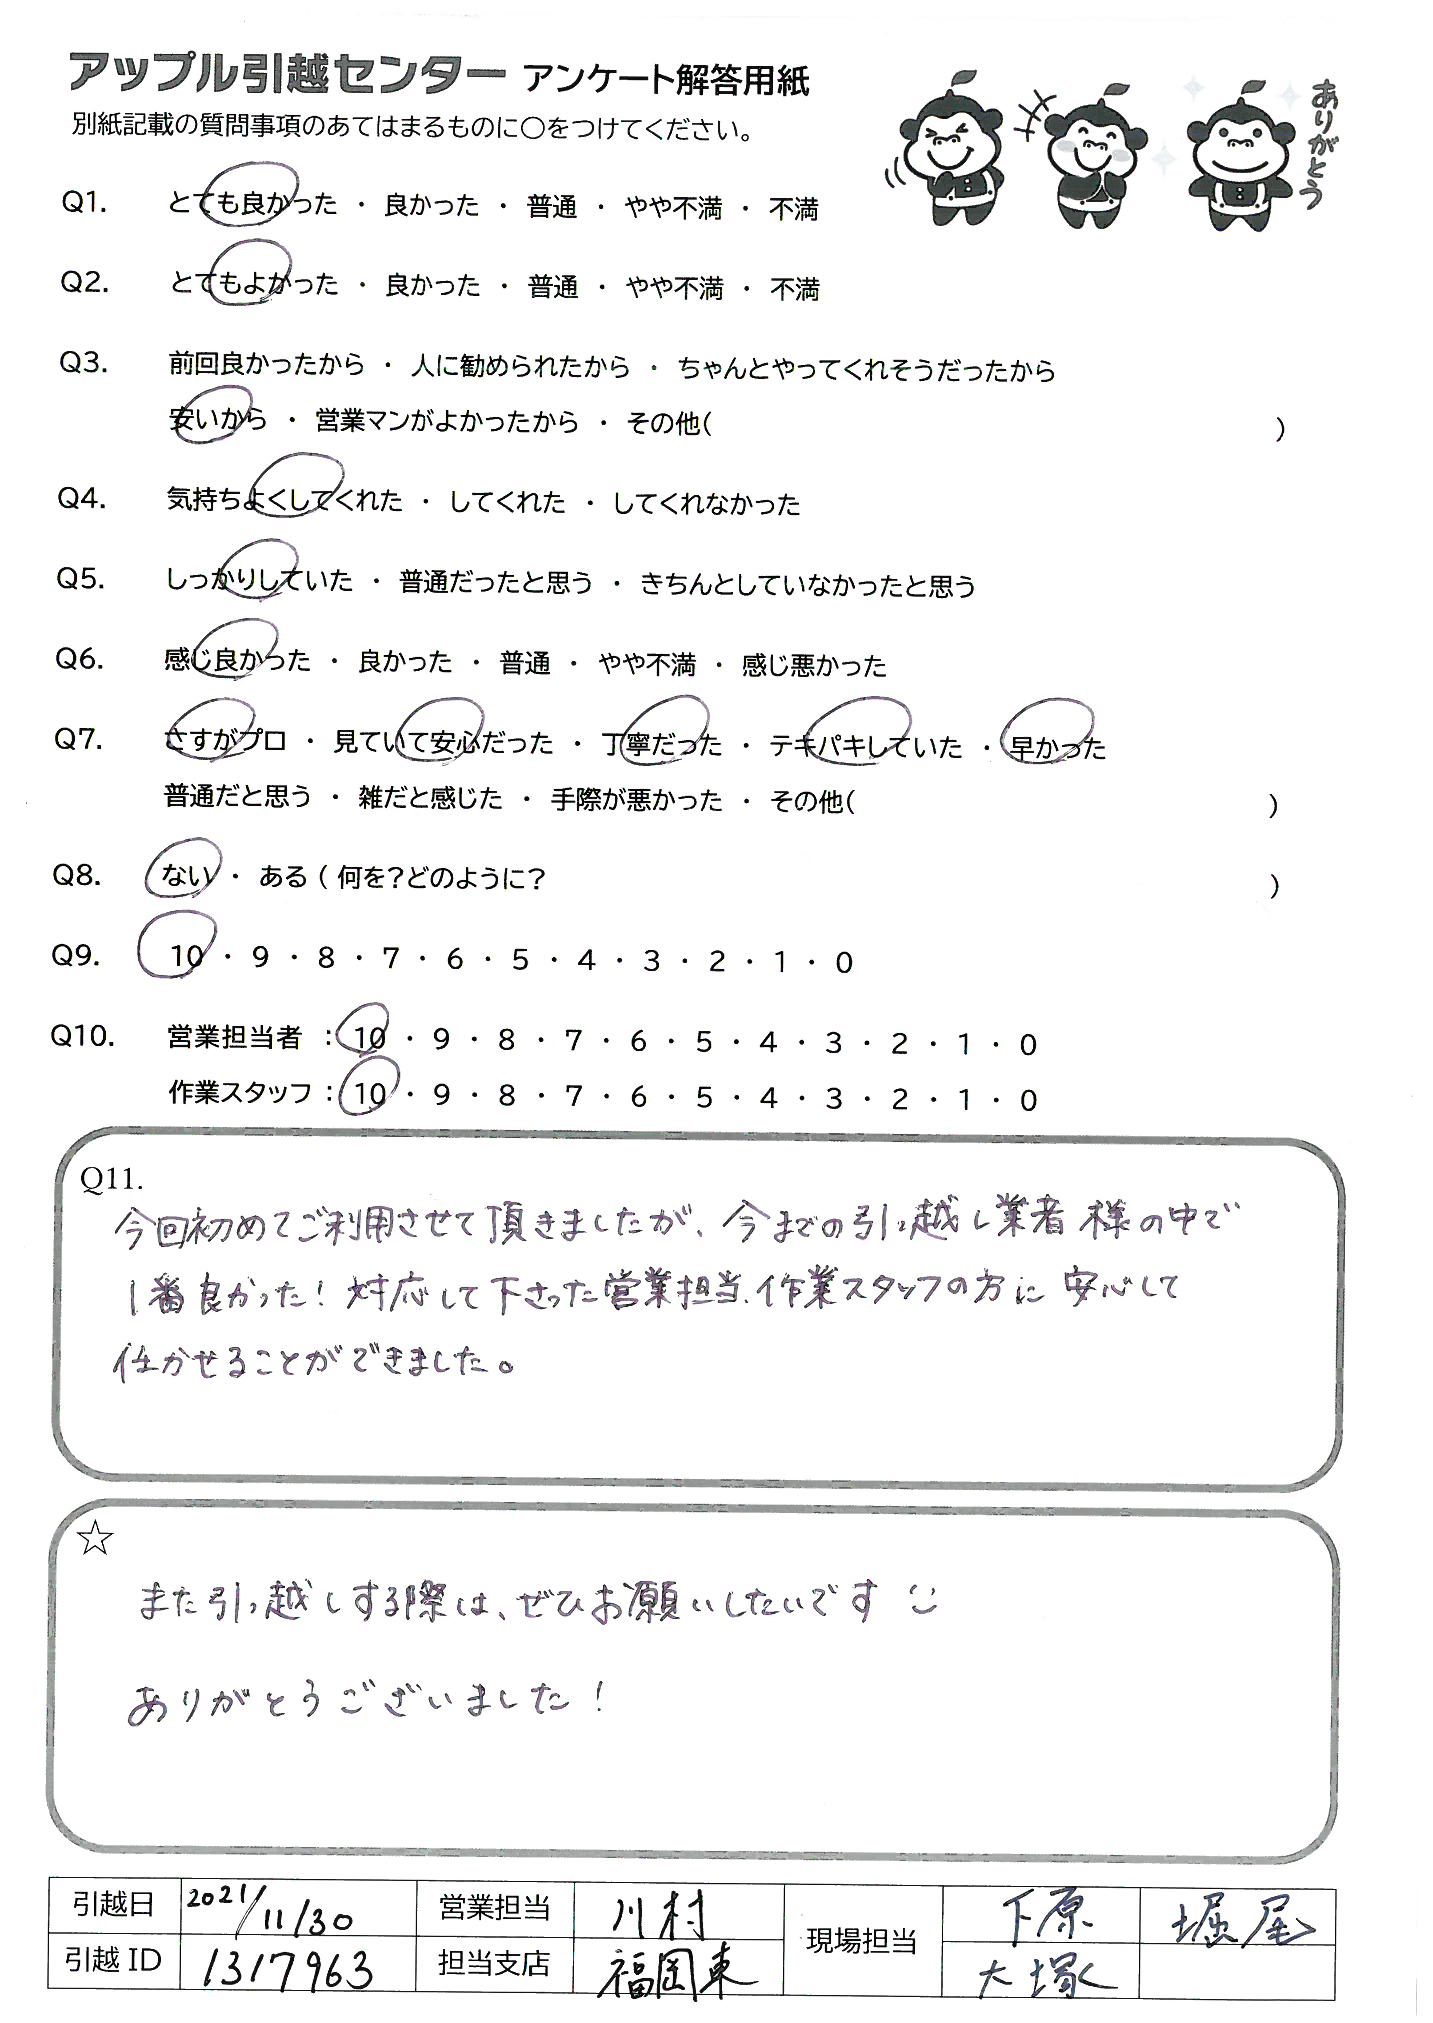 アップル引越センター アンケート解答用紙
別紙記載の質問事項のあてはまるものに〇をつけてください。
ありがとう
Q1. とても良かった ・ 良かった ・ 普通 ・ やや不満 ・ 不満
Q2. とてもよかった ・ 良かった ・ 普通 ・ やや不満 ・ 不満
Q3. 前回良かったから ・ 人に勧められたから ・ ちゃんとやってくれそうだったから
安いから ・ 営業マンがよかったから ・ その他( )
Q4. 気持ちよくしてくれた ・ してくれた ・ してくれなかった
Q5. しっかりしていた ・ 普通だったと思う ・ きちんとしていなかったと思う
Q6. 感じ良かった ・ 良かった ・ 普通 ・ やや不満 ・ 感じ悪かった
Q7. さすがプロ ・ 見ていて安心だった ・ 丁寧だった ・ テキパキしていた ・ 早かった
普通だと思う ・ 雑だと感じた ・ 手際が悪かった ・ その他( )
Q8. ない ・ ある ( 何を?どのように? )
Q9. 10 ・ 9 ・ 8 ・ 7 ・ 6 ・ 5 ・ 4 ・ 3 ・ 2 ・ 1 ・ 0
Q10. 営業担当者 : 10 ・ 9 ・ 8 ・ 7 ・ 6 ・ 5 ・ 4 ・ 3 ・ 2 ・ 1 ・ 0
作業スタッフ : 10 ・ 9 ・ 8 ・ 7 ・ 6 ・ 5 ・ 4 ・ 3 ・ 2 ・ 1 ・ 0
Q11.
今回初めてご利用させて頂きましたが、今までの引っ越し業者様の中で
1番良かった!対応して下さった営業担当、作業スタッフの方に安心して
任かせることができました。
☆
また引っ越しする際は、ぜひお願いしたいです
ありがとうございました!
引越日 2021/11/30 営業担当 川村 現場担当 下原 堀尾
引越ID 1317963 担当支店 福岡東 大塚